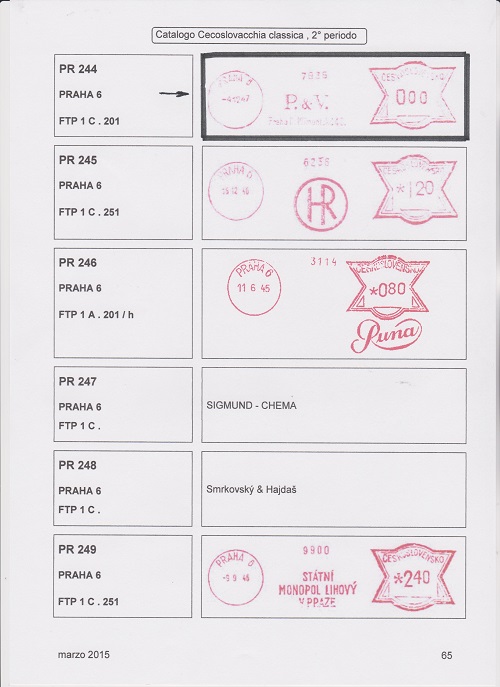 Catalogo Cecoslovacchia classica , 2° periodo
PR 244
PRAHA 6
FTP 1 C . 201
PRAHA 6
7636
P. & V.
ČESKOSLOVENSKO
000
PR 245
PRAHA 6
FTP 1 C . 251
PRAHA 6
6256
HR
*120
PR 246
PRAHA 6
FTP 1 A . 201 / h
PRAHA 6
11 6 45
3114
ČESKOSLOVENSKO
*080
Puna
PR 247
PRAHA 6
FTP 1 C .
SIGMUND - CHEMA
PR 248
PRAHA 6
FTP 1 C .
Smrkovský & Hajdaš
PR 249
PRAHA 6
FTP 1 C . 251
PRAHA 6
-9.9 46
9900
STÁTNÍ
MONOPOL LIHOVÝ
V PRAZE
ČESKOSLOVENSKO
*240
marzo 2015
65